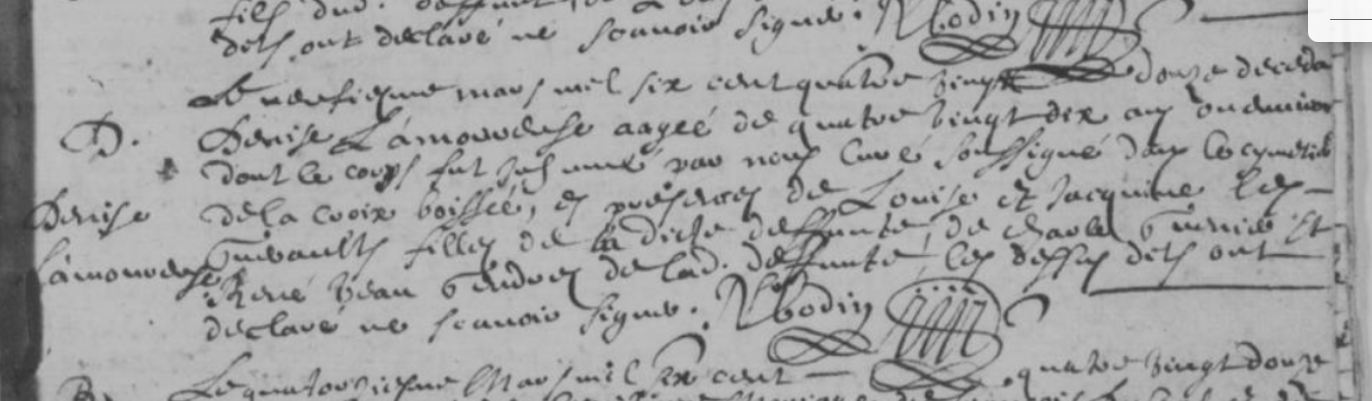 filz dud. deffunt
detz ont declaré ne scavoir signer. Rbodin
Le neufiesme mars mil six cent quatre vingt douze deceda
D. Denise Lamoureuse aagée de quatre vingt dix ans ou environ
dont le corps fut inhumé par nous curé soussigné dans le cymetiere
Denise de la croix boissée, es presences de Louise et Jacquine les
Guivaultz filles de la dicte deffunte, de charles Guerrier Et
Lamoureuse René veau Gendres de lad. deffunte, les dessus detz ont
declaré ne scavoir signer. Rbodin
Le quatorziesme Mars mil six cent quatre vingt douze